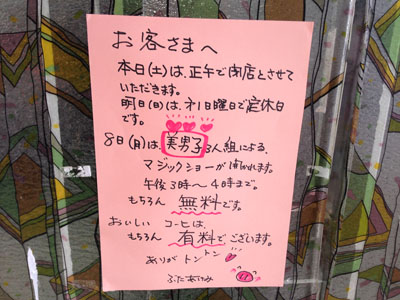 お客さまへ
本日(土)は、正午で閉店とさせて
いただきます。
明日(日)は、オ1日曜日で定休日
です。
8日(月)は美男子3人組による、
マジックショーが開かれます。
午後3時〜4時まで。
もちろん 無料です。
おいしい コーヒーは、
もちろん 有料でございます。
ありが トントン
ふたあけみ